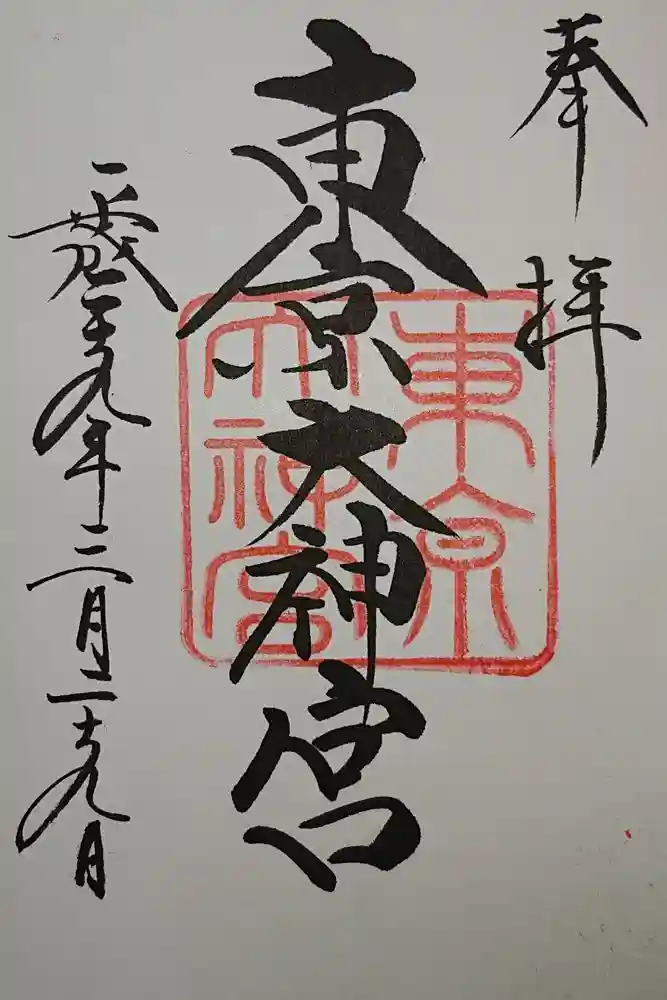 奉拝
東京大神宮
平成二十九年三月二十九日
東京
大神宮